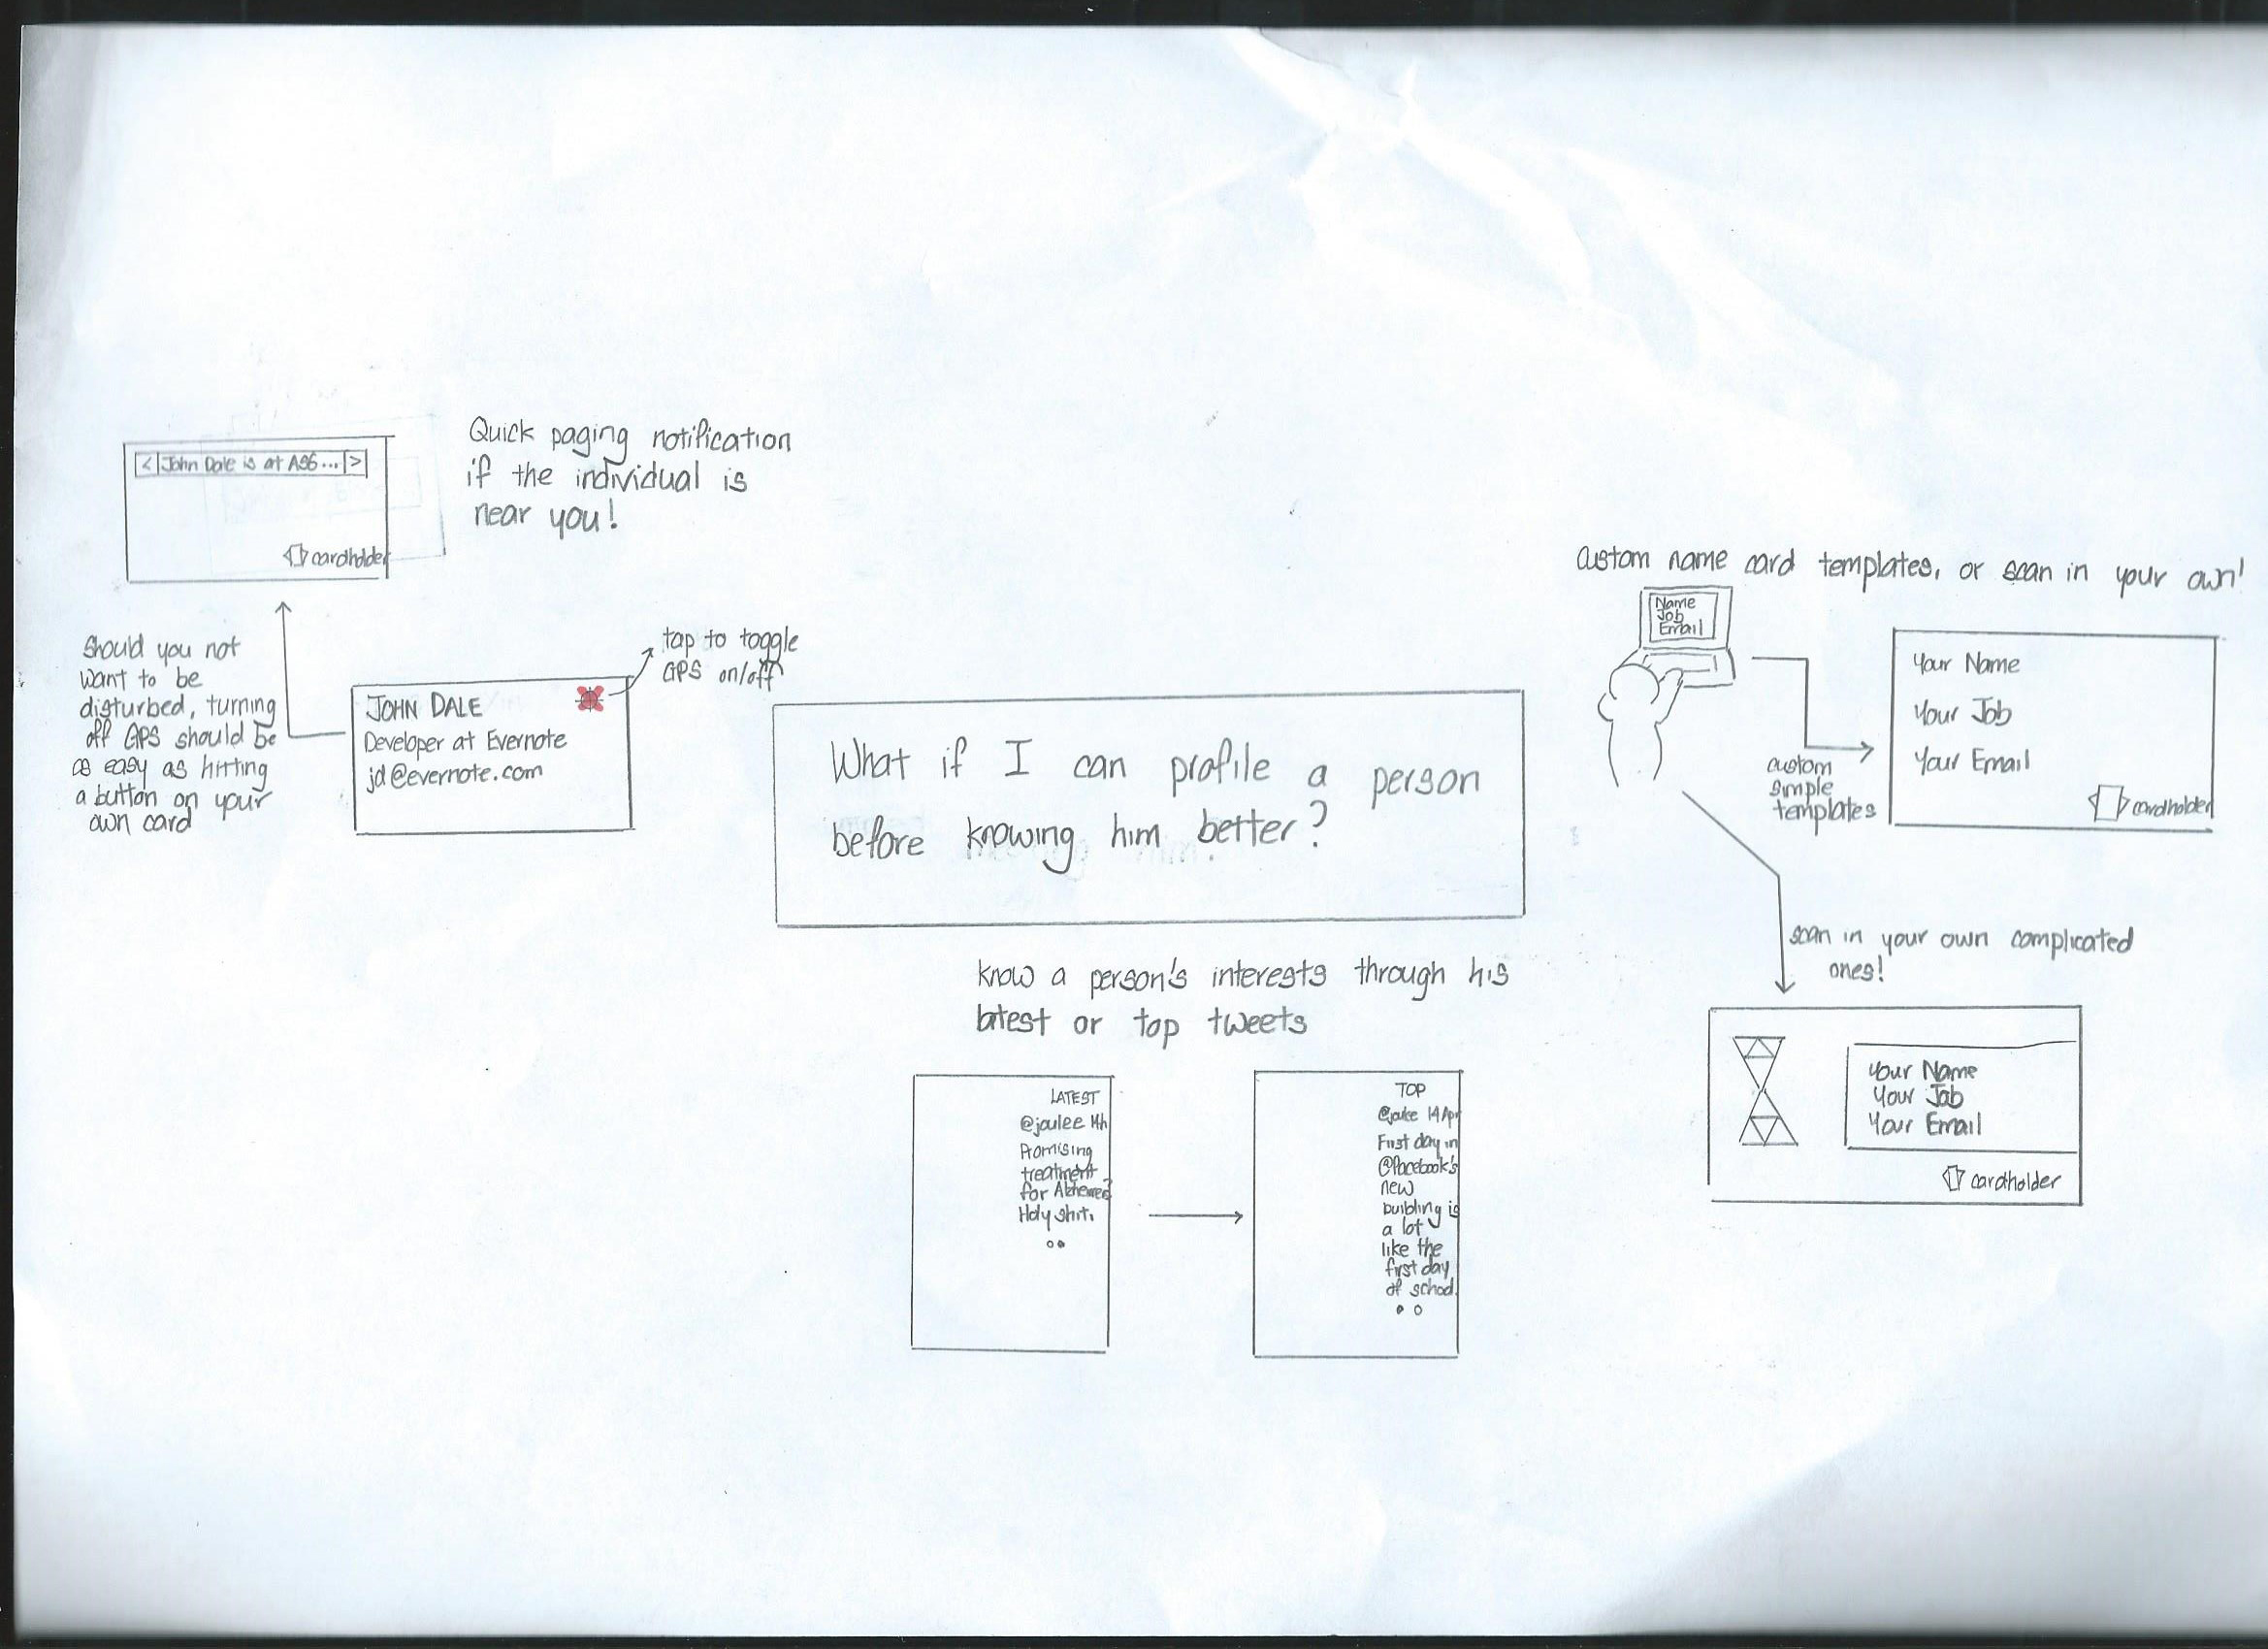 Quick paging notification
if the individual is
near you!
< John Dale is at AS6... >
cardholder
Should you not
want to be
disturbed, turning
off GPS should be
as easy as hitting
a button on your
own card
tap to toggle
GPS on/off
JOHN DALE
Developer at Evernote
jd@evernote.com
What if I can profile a person
before knowing him better?
know a person's interests through his
latest or top tweets
LATEST
@joulee 14h
Promising
treatment
for
Holy shit.
TOP
@joulee 14 Apr
First day in
@facebook's
new
building is
a lot
like the
first day
of school.
custom name card templates, or scan in your own!
Name
Job
Email
custom
simple
templates
Your Name
Your Job
Your Email
cardholder
scan in your own complicated
ones!
Your Name
Your Job
Your Email
cardholder